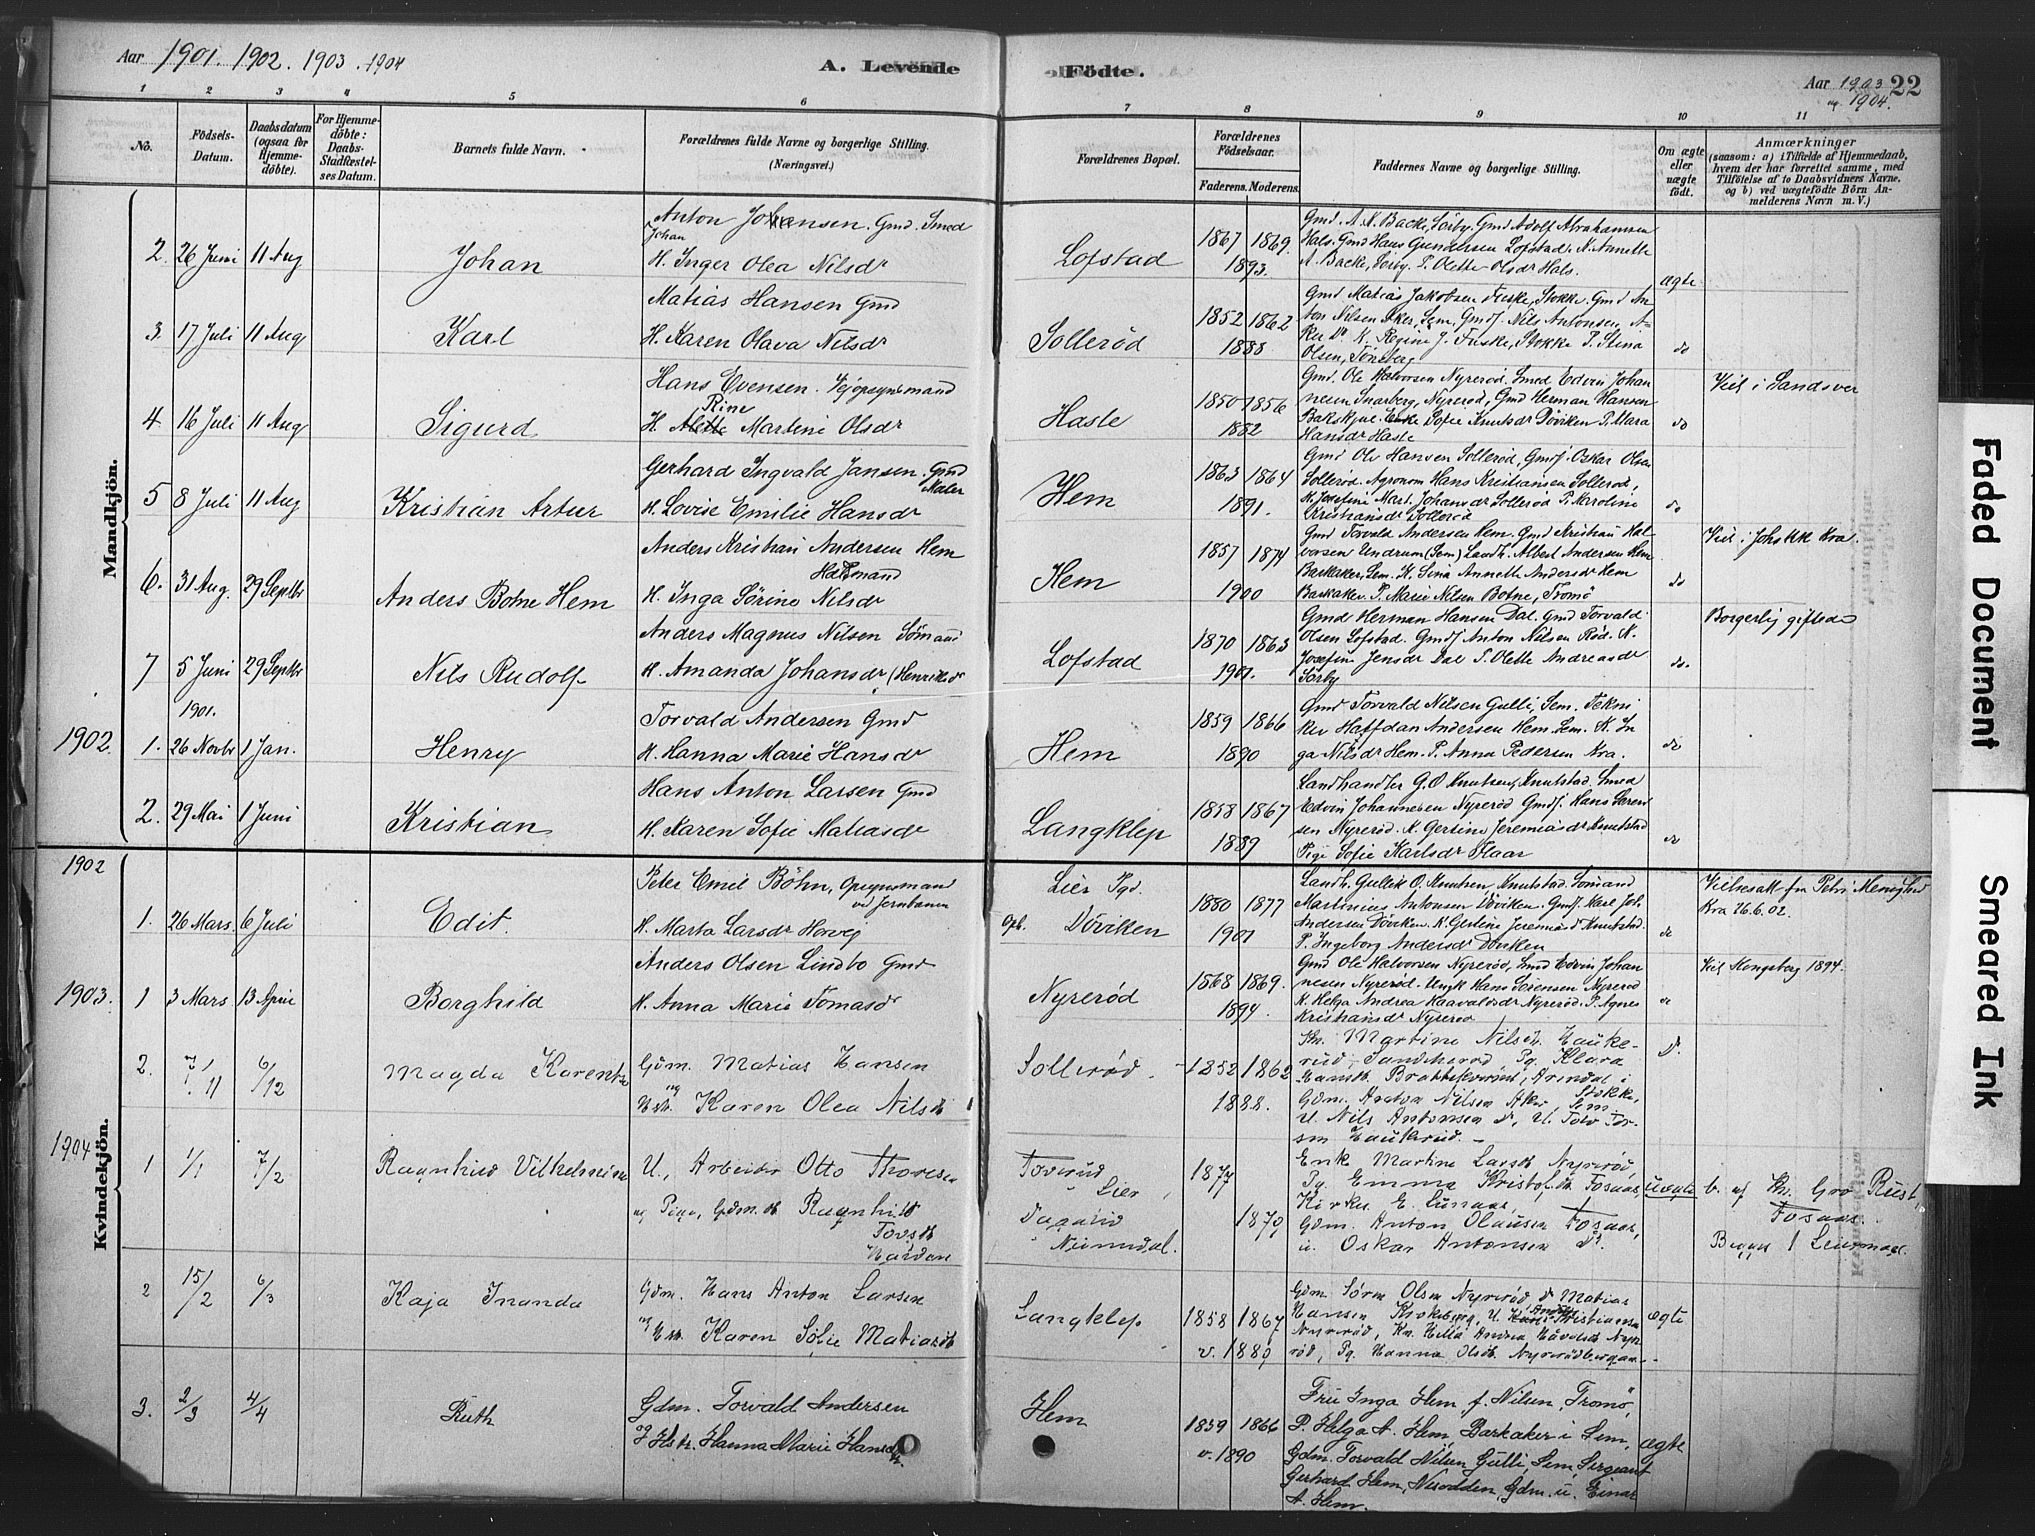 Aar 1901. 1902. 1903. 1904
A. Levende Födte.
Aar 1903 og 1904. 22
1 2 3 4 5 6 7 8 9 10 11
No.
Födsels-Datum.
Daabsdatum (ogsaa for Hjemme-döbte).
For Hjemme-döbte: Daabs-Stadfæstel-ses Datum.
Barnets fulde Navn.
Forældrenes fulde Navne og borgerlige Stilling.
(Næringsvei.)
Forældrenes Bopæl.
Forældrenes Födselsaar.
Faderens. Moderens.
Faddernes Navne og borgerlige Stilling.
Om ægte eller uægte födt.
Anmærkninger
(saasom: a) i Tilfælde af Hjemmedaab,
hvem der har forrettet samme, med
Tilföielse af to Daabsvidners Navne,
og b) ved uægtefödte Börn An-
melderens Navn m. V.)
Mandkjön.
2. 26 Juni 11 Aug Johan
Anton Johansen Gmd. Smed
Johan
H. Inger Olea Nilsdr
Lofstad 1867 1869. 1893.
Gmd. A. N. Backe, Sörby. Gmd Adolf Abrahamsen
Hals. Gmd Hans Gundersen Lofstad. K. Annette
A. Backe, Sörby. P. Olette Olsdr Hals.
ægte
3. 17 Juli 11 Aug Karl
Matias Hansen Gmd
H. Karen Olava Nilsdr
Sollerød 1852 1862 1888
Gmd Matias Jakobsen Fuske, Stokke. Gmd An-
ton Nilsen Aker, Sem, Gmdf. Nils Antonsen, A-
ker Do K. Regine J. Fuske, Stokke P. Stina
Olsen, Tönsberg
do
4 16 Juli 11 Aug Sigurd
Hans Evensen. Vejopsynsmand
Rine
H. Alette Martine Olsdr
Hasle 1850 1856 1882
Gmd. Ole Halvorsen Nyrerød. Smed Edvin Johan
nesen Snarberg, Nyrerød, Gmd Herman Hansen
Bakskjue. Enke Sofie Knutsdr Döviken P. Mara
Hansdr Hasle
do
Viet i Sandsver
5 8 Juli 11 Aug Kristian Artur
Gerhard Ingvald Jansen. Gmd
Maler
H. Lovise Emilie Hansdr
Hem 1863 1864 1891.
Gmd Ole Hansen Sollerød, Gmdf. Oskar Olsen
Sollerød. Agronom Hans Kristiansen Sollerød,
K. Josefine Mart. Johansdr Sollerød P. Karoline
Kristiansdr Sollerød
do
6. 31 Aug. 29 Septbr Anders Botne Hem
Anders Kristian Andersen Hem
H. Inga Sörine Nilsdr
Hem 1857 1874 1900
Gmd Torvald Andersen Hem. Gmd Kristian Hal-
vorsen Undrum (Sem) Landh. Albert Andersen Hem
Barkaker, Sem. K. Sina Annette Andersdr Hem
Barkaker P. Marie Nilsen Botne, Tromö
do
Viet i Johs Kk Kra.
7 5 Juni 29 Septbr Nils Rudolf
Anders Magnus Nilsen Sömand
H. Amanda Johansdr (Henriksdr
Lofstad 1870 1863 1901.
Gmd Herman Hansen Dal. Gmd Torvald
Olsen Lofstad. Gmdf Anton Nilsen Röd. K.
Josefine Jensdr Dal P. Olette Andreasdr
Sörby
do.
Borgerlig giftede
1902. 1. 1901. 26 Novbr 1 Jan. Henry
Torvald Andersen Gmd
H. Hanna Marie Hansdr
Hem 1859 1866 1890
Gmd Torvald Nilsen Gulli, Sem. Tekni
ker Halfdan Andersen Hem Sem. K. In
ga Nilsdr Hem. P. Anna Pedersen Kra.
do
2. 29 Mai 1 Juni Kristian
Hans Anton Larsen Gmd
H. Karen Sofie Matiasdr
Langklep 1858 1867 1889
Landhandler G. O Knutsen, Knutstad. Smed
Edvin Johannesen Nyrerød Gmdf. Hans Sören
sen Nyrerød. K. Gertine Jeremiasdr Knutstad
Pige Sofie Karlsdr Flaar
do
Kvindekjön.
1902 1. 26 Mars. 6 Juli Edit.
Peter Emil Böhn, Opsynsmand
ved Jernbanen
H. Marta Larsdr Horveg
Lier Pgd.
oph. Döviken 1880 1877 1901
Landh. Gullik O. Knutsen, Knutstad. Sömand
Martinius Antonsen Döviken. Gmdf. Karl Joh.
Andersen Döviken. K. Gertine Jeremiasdr Knutstad.
P. Ingeborg Andersdr Döviken
do
Vielsesatt fra Petri Menighed
Kra 26.6.02.
1903. 1 3 Mars 13 April Borghild
Anders Olsen Lindbo Gmd
H. Anna Marie Tomasdr
Nyrerød 1868 1869. 1894.
Gmd Ole Halvorsen Nyrerød, Smd Edvin Johan
nesen Nyrerød. Ungk Hans Sörensen Nyrerød
K. Helga Andrea Haavaldsdr Nyrerød. P. Agnes
Kristiansdr Nyrerød
do
Viet Kongsberg 1894.
2. 7/11 6/12 Magda Karentse
Gdm. Matias Hansen
og
Hstr. Karen Olea Nilsdtr
Sollerød. 1852 1862 1888.
Kn. Martine Nilsdtr Hauke-
rud, Sandeherred Pg. Klara
Hansdtr Brattekverød, Arendal i
Stokke,
Gdm. Anton Nilsen Aker, Sem,
U. Nils Antonsen do, U. Tolv Tor-
sen Haukerud. -
do
1904 1 1/1 7/2 Ragnhild Vilhelmine
U., Arbeider Otto Thoresen
og Pige, Gdm. dtr Ragnhild
Torsdtr
Toverud Lier,
Numedal. 1877 1879
Enke Martine Larsdtr Nyrerød,
Pg. Emma Kristofdtr Fosaas,
Kirkes. E. Lunaas,
Gdm. Anton Olausen Fosaas,
u. Oskar Antonsen do.
uægte
b. af Kn. Gro Rust,
Fosaas.
2 15/2 6/3 Kaja Inanda
Gdm. Hans Anton Larsen
og Hstr. Karen Sofie Matiasdtr
Langklep 1858 1867 v. 1889
Gdm. Sörn Olsen Nyrerød do Matias
Hansen Krokeborg, U. Anders Kristiansen
Nyrerød, Kn. Helga Andrea Havoldsdtr Nyre-
rød, Pg. Hanna Olsdtr Nyrerødbergan.
ægte
3. 2/3 4/4 Ruth
Gdm. Torvald Andersen
og Hstr. Hanna Marie Hansdtr
Hem 1859 1866 v. 1890
Fru Inga Hem f. Nilsen, Tromö,
P. Helga A. Hem, Barkaker i Sem,
Gdm. Torvald Nilsen Gulli Sem, Sergeant
Gerhard Hem, Nesodden, Gdm. u. Einar
A. Hem.
ægte
Faded Document
Smeared Ink